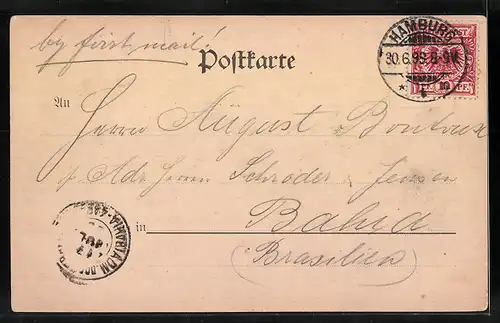 by first mail!
Postkarte
HAMBURG
30.6.99. 8-9N.
* 1 m
An
Herrn August
p. Adr. Herren Schröder & Jensen
in Bahia
(Brasilien)
JUL